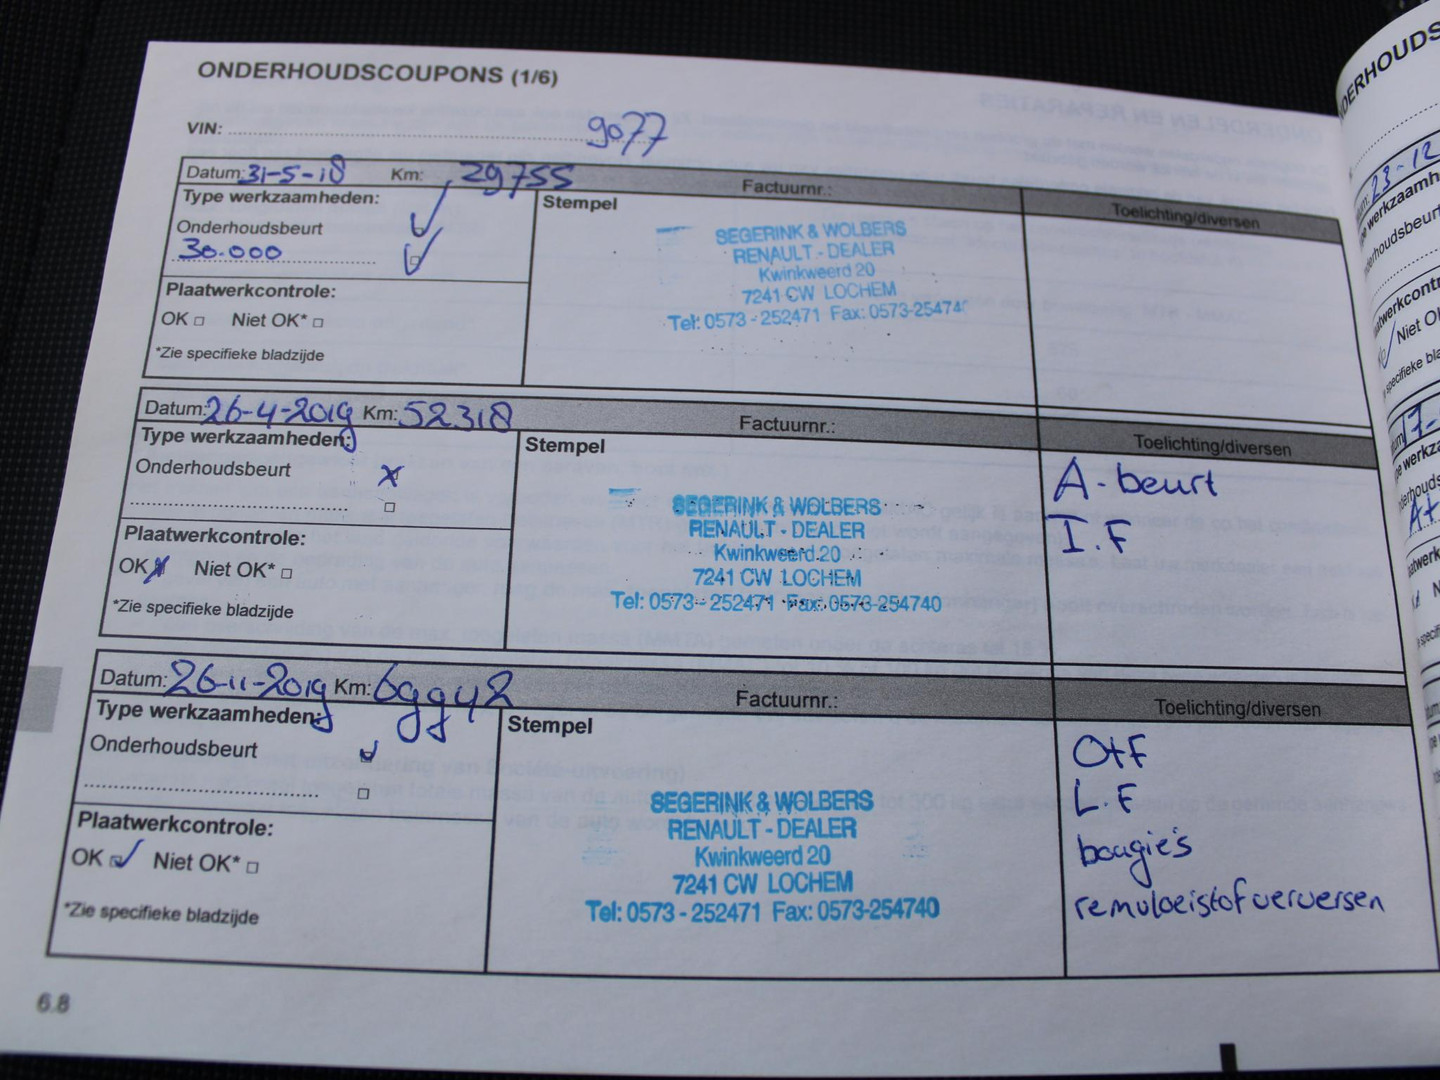 ONDERHOUDSCOUPONS (1/6)
VIN: 9077
Datum: 31-5-18 Km: 29755 Factuurnr.: Toelichting/diversen
Type werkzaamheden:
Onderhoudsbeurt
30.000
Stempel
SEGERINK & WOLBERS
RENAULT - DEALER
Kwinkweerd 20
7241 CW LOCHEM
Tel: 0573 - 252471 Fax: 0573-25474
Plaatwerkcontrole:
OK Niet OK*
*Zie specifieke bladzijde
Datum: 26-4-2019 Km: 52318 Factuurnr.: Toelichting/diversen
Type werkzaamheden:
Onderhoudsbeurt x
Stempel
SEGERINK & WOLBERS
RENAULT - DEALER
Kwinkweerd 20
7241 CW LOCHEM
Tel: 0573 - 252471 Fax: 0573-254740
A-beurt
I.F
Plaatwerkcontrole:
OK x Niet OK*
*Zie specifieke bladzijde
Datum: 26-11-2019 Km: 69942 Factuurnr.: Toelichting/diversen
Type werkzaamheden:
Onderhoudsbeurt
Stempel
SEGERINK & WOLBERS
RENAULT - DEALER
Kwinkweerd 20
7241 CW LOCHEM
Tel: 0573 - 252471 Fax: 0573-254740
O+F
L.F
bougie's
remvloeistof verversen
Plaatwerkcontrole:
OK Niet OK*
*Zie specifieke bladzijde
6.8
23-12
Niet
17-
A+